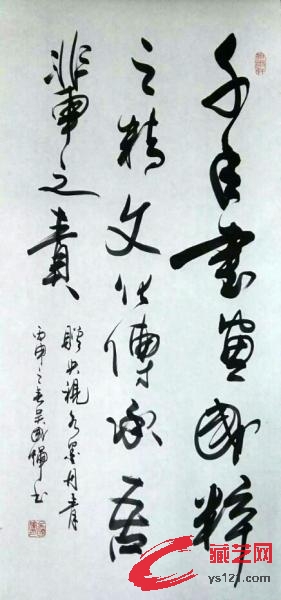 千年書畫國粹
之精文化傳承吾
輩之責
贈央視水墨丹青
丙申之春吴國书
藏艺网
ys121.com